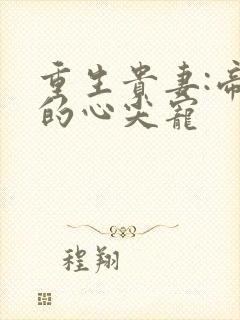 重生贵妻:帝
的心尖寵
程翔